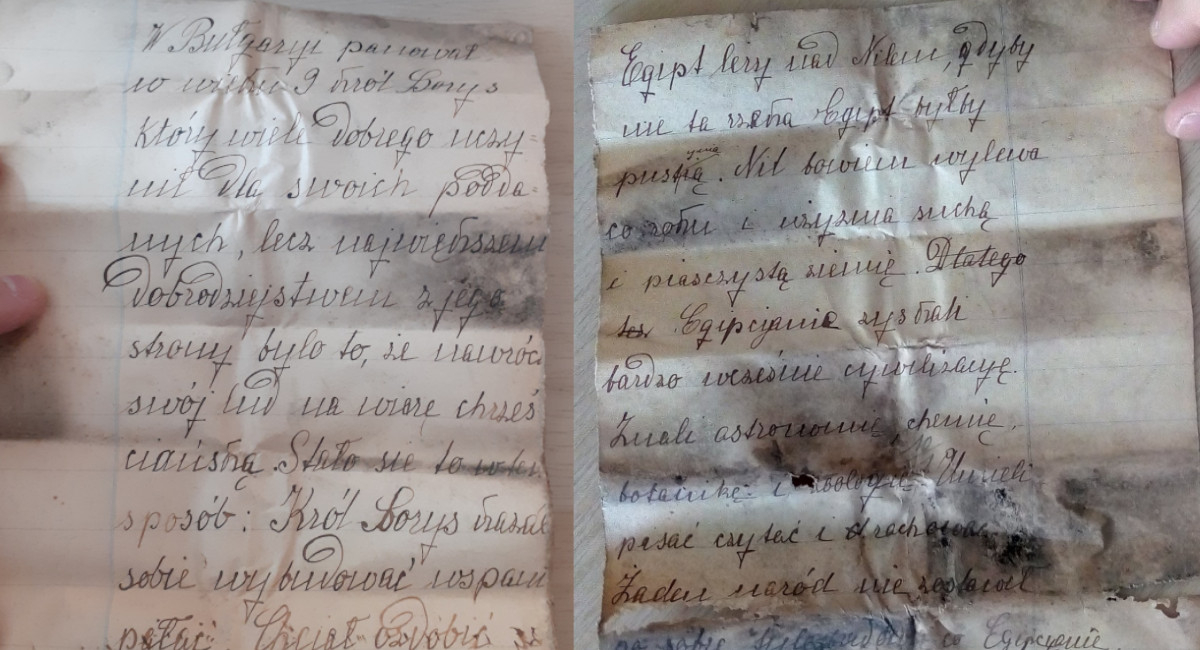 W Bułgaryi panował
w wieku 9 król Borys
który wiele dobrego uczy=
nił dla swoich podda=
nych, lecz największem
dobrodziejstwem z jego
strony było to, że nawróc
swój lud na wiarę chrześ
ciańską. Stało się to w ten
sposób: Król Borys kazał
sobie wybudować wspani
pałac. Chciał ozdobić
Egipt leży nad Nilem, gdyby
nie ta rzeka Egipt byłby
pustynią. Nil bowiem wylewa
co roku i użyźnia suchą
i piasczystą ziemię. Dlatego
też Egipcjanie zyskali
bardzo wcześnie cywilizacyę.
Znali astronomię, chemię,
botanikę i zoologię. Umieli
pisać czytać i rachować.
Żaden naród nie zostawił
po sobie tyle co Egipcjanie,